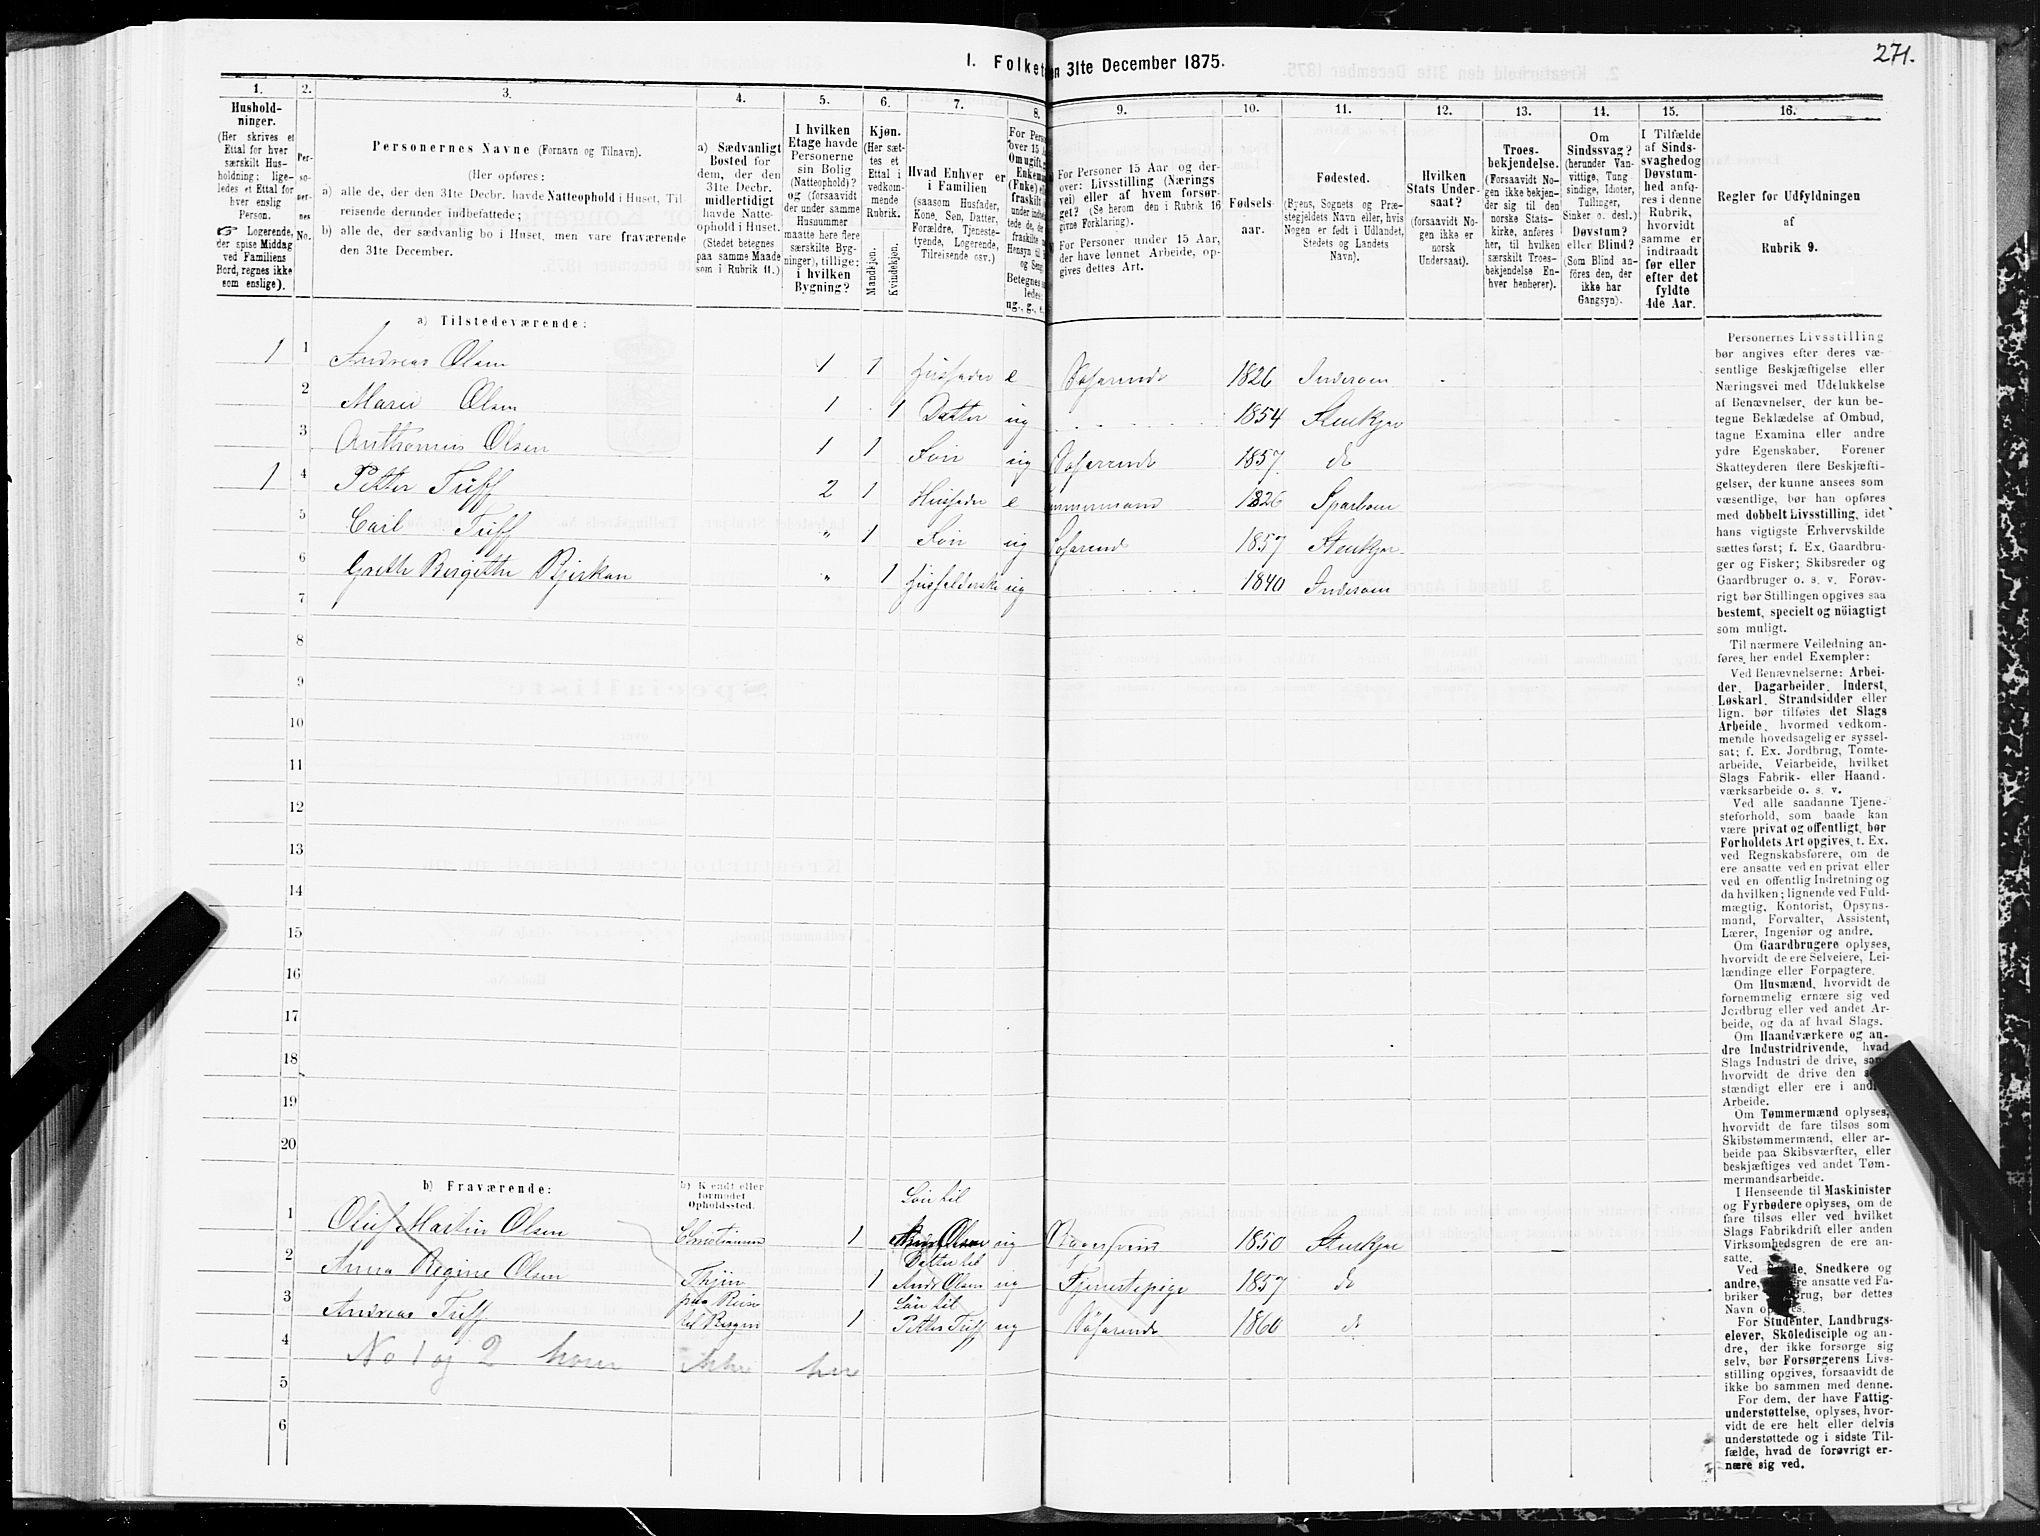 271.
1. Folket
en 31te December 1875.
1. 2. 3. 4. 5. 6. 7. 8. 9. 10. 11. 12. 13. 14. 15. 16.
Hushold-
ninger.
(Her skrives et
Ettal for hver
særskilt Hus-
holdning; lige-
ledes et Ettal for
hver enslig
Person.
☞ Logerende,
der spise Middag
ved Familiens
Bord, regnes ikke
som enslige).
Per-
so-
ner-
nes
No.
Personernes Navne (Fornavn og Tilnavn).
(Her opføres:
a) alle de, der den 31te Decbr. havde Natteophold i Huset, Til-
reisende derunder indbefattede;
b) alle de, der sædvanlig bo i Huset, men vare fraværende
den 31te December.
a) Sædvanligt
Bosted for
dem, der den
31te Decbr.
midlertidigt
havde Natte-
ophold i Huset.
(Stedet betegnes
paa samme Maade
som i Rubrik 11.)
I hvilken
Etage havde
Personerne
sin Bolig
(Natteophold)?
og (forsaavidt
der under samme
Husnummer
maatte høre flere
særskilte Byg-
ninger), tillige:
i hvilken
Bygning?
Kjøn.
(Her sæt-
tes et
Ettal i
vedkom-
mende
Rubrik.
Mandkjøn.
Kvindekjøn.
Hvad Enhver er
i Familien
(saasom Husfader,
Kone, Søn, Datter,
Forældre, Tjeneste-
tyende, Logerende,
Tilreisende osv.)
For Pers
over 15 A
Om ugift,
Enkema
(Enke) el
fraskilt
under indb
tede de, de
fraskilte
Hensyn til
og Seng
Betegnes s
ledes
ug., g., e.
For Personer 15 Aar og der-
over: Livsstilling (Nærings
vei) eller af hvem forsør-
get? (Se herom den i Rubrik 16
givne Forklaring).
For Personer under 15 Aar,
der have lønnet Arbeide, op-
gives dettes Art.
Fødsels-
aar.
Fødested.
(Byens, Sognets og Præ-
stegjeldets Navn eller, hvis
Nogen er født i Udlandet,
Stedets og Landets
Navn).
Hvilken
Stats Under-
saat?
(forsaavidt No-
gen ikke er
norsk
Undersaat).
Troes-
bekjendelse.
(Forsaavidt No-
gen ikke bekjen-
der sig til den
norske Stats-
kirke, anføres
her, til hvilken
særskilt Troes-
bekjendelse En-
hver henhører).
Om
Sindssvag?
(herunder Van-
vittige, Tung
sindige, Idioter,
Tullinger,
Sinker o. desl.)
Døvstum?
eller Blind?
(Som Blind an-
føres den, der
ikke har
Gangsyn).
I Tilfælde
af Sinds-
svaghed og
Døvstum-
hed anfø-
res i denne
Rubrik,
hvorvidt
samme er
indtraadt
før eller
efter det
fyldte
4de Aar.
Regler for Udfyldningen
af
Rubrik 9.
a) Tilstedeværende:
1 1 Andreas Olsen 1 1 Husfader e Søfarende 1826 Inderøen
2 Marie Olsen 1 1 Datter ug 1854 Stenkjær
3 Anthonius Olsen 1 1 Søn ug Søfarende 1857 do
1 4 Petter Treff 2 1 Husfader e Tømmermand 1826 Sparboen
5 Carl Treff " 1 Søn ug Søfarend 1857 Stenkjær
6 Greth Birgitte Bjerkan " 1 Husholderske ug 1840 Inderøen
7
8
9
10
11
12
13
14
15
16
17
18
19
20
b) Fraværende:
b) Kjendt eller
formodet
Opholdssted.
Søn til
1 Oluf Martin Olsen Christiansen 1 Andr Olsen ug 1850 Stenkjær
Datter til
2 Anna Regine Olsen 1 Andr Olsen ug Tjenestepige 1857 do
paa Reise
Søn til
3 Andreas Treff 1 Petter Treff ug Søfarende 1860 do
4 No 1 og 2 hører ikke her
5
6
Personernes Livsstilling
bør angives efter deres væ-
sentlige Beskjæftigelse eller
Næringsvei med Udelukkelse
af Benævnelser, der kun be-
tegne Beklædelse af Ombud,
tagne Examina eller andre
ydre Egenskaber. Forener
Skatteyderen flere Beskjæfti-
gelser, der kunne ansees som
væsentlige, bør han opføres
med dobbelt Livsstilling, idet
hans vigtigste Erhvervskilde
sættes først; f. Ex. Gaardbru-
ger og Fisker; Skibsreder og
Gaardbruger o. s. v. Forøv-
rigt bør Stillingen opgives saa
bestemt, specielt og nöiagtigt
som muligt.
Til nærmere Veiledning an-
føres her endel Exempler:
Ved Benævnelserne: Arbei-
der, Dagarbeider, Inderst,
Løskarl, Strandsidder eller
lign. bør tilføies det Slags
Arbeide, hvormed vedkom-
mende hovedsagelig er syssel-
sat; f. Ex. Jordbrug, Tomte-
arbeide, Veiarbeide, hvilket
Slags Fabrik- eller Haand-
værksarbeide o. s. v.
Ved alle saadanne Tjene-
steforhold, som baade kan
være privat og offentligt, bør
Forholdets Art opgives, f. Ex.
ved Regnskabsførere, om de
ere ansatte ved en privat eller
ved en offentlig Indretning og
da hvilken; lignende ved Fuld-
mægtig, Kontorist, Opsyns-
mand, Forvalter, Assistent,
Lærer, Ingeniør og andre.
Om Gaardbrugere oplyses,
hvorvidt de ere Selveiere, Lei-
lændinge eller Forpagtere.
Om Husmænd, hvorvidt de
fornemmelig ernære sig ved
Jordbrug eller ved andet Ar-
beide, og da af hvad Slags.
Om Haandværkere og an-
dre Industridrivende, hvad
Slags Industri de drive, samt
hvorvidt de drive den selv-
stændigt eller ere i andres
Arbeide.
Om Tømmermænd oplyses,
hvorvidt de fare tilsøs som
Skibstømmermænd, eller ar-
beide paa Skibsværfter, eller
beskjæftiges ved andet Tøm-
mermandsarbeide.
I Henseende til Maskinister
og Fyrbødere oplyses, om de
fare tilsøs eller ved hvilket
Slags Fabrikdrift eller anden
Virksomhedsgren de ere an-
satte.
Ved Snedkere og
andre, ere ansatte ved Fa-
briker Brug, bør dettes
Navn opgives.
For Studenter, Landbrugs-
elever, Skoledisciple og an-
dre, der ikke forsørge sig
selv, bør Forsørgerens Livs-
stilling opgives, forsaavidt de
ikke bo sammen med denne.
For dem, der have Fattig-
understøttelse, oplyses, hvor-
vidt de ere helt eller delvis
understøttede og i sidste Til-
fælde, hvad de forøvrigt er-
nære sig ved.